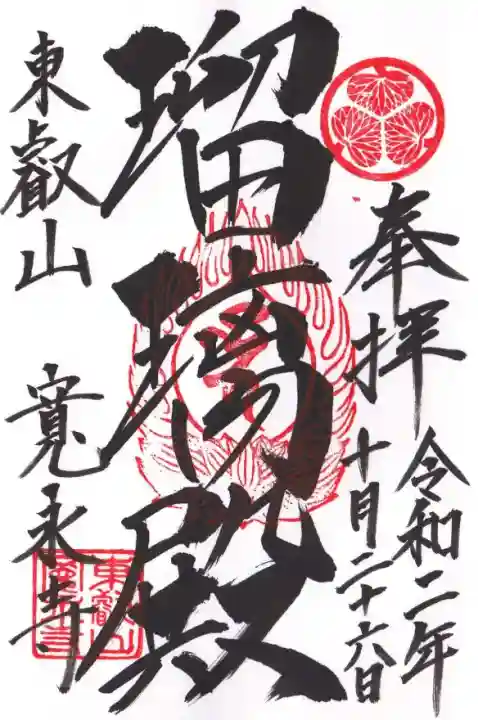 奉拝
令和二年
十月二十六日
瑠璃殿
東叡山
寛永寺
東叡山
寛永寺